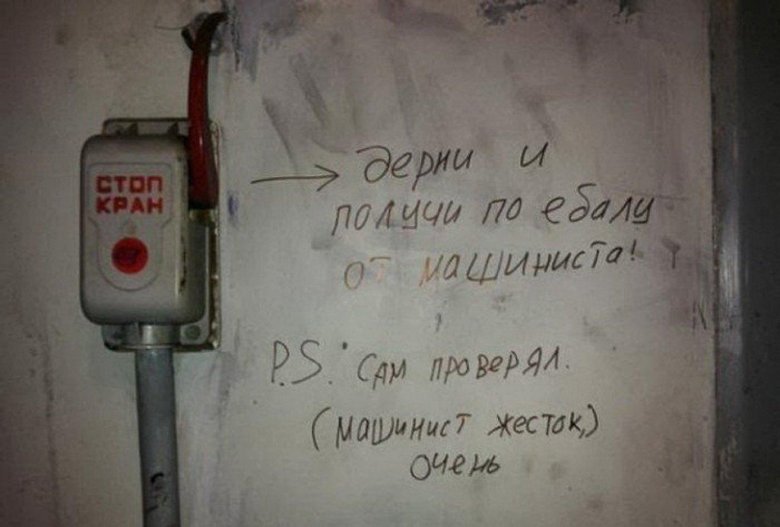 СТОП
КРАН
→ дерни и
получи по ебалу
от машиниста!
P.S. Сам проверял.
(машинист жесток,)
очень